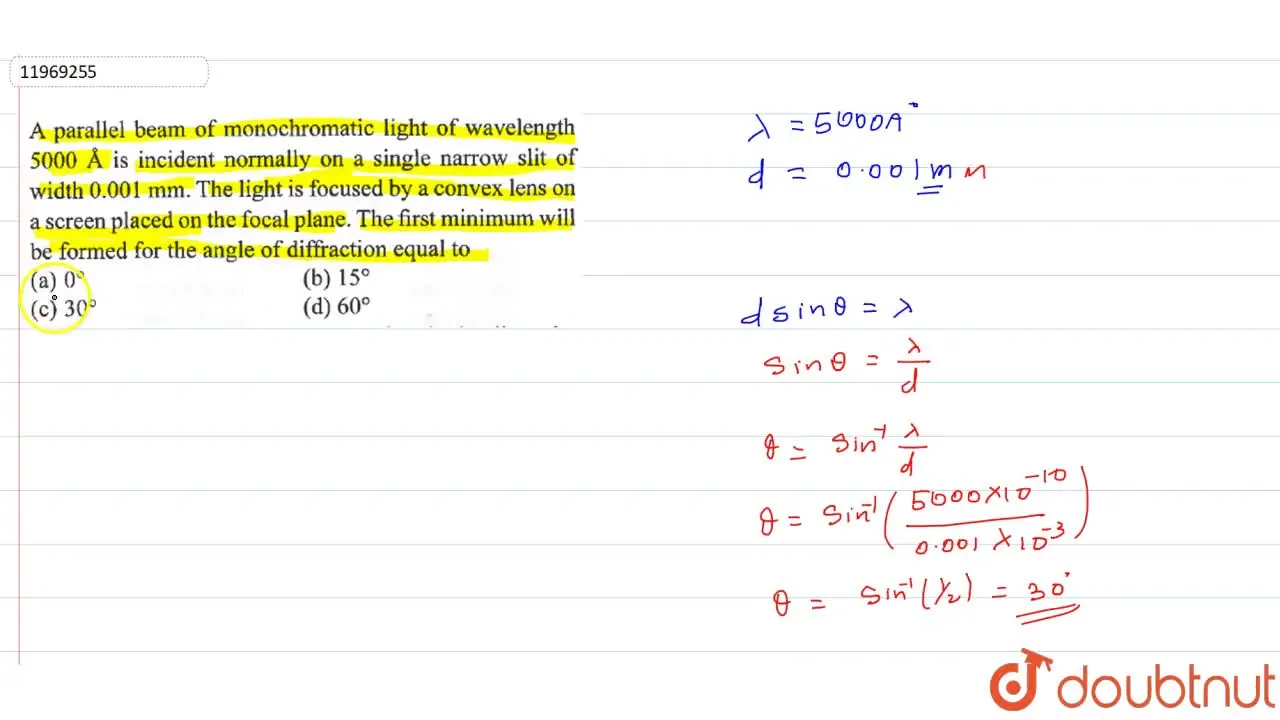 11969255
A parallel beam of monochromatic light of wavelength
5000 Å is incident normally on a single narrow slit of
width 0.001 mm. The light is focused by a convex lens on
a screen placed on the focal plane. The first minimum will
be formed for the angle of diffraction equal to
(a) 0° (b) 15°
(c) 30° (d) 60°
λ = 5000A°
d = 0.001mm
d sinθ = λ
sinθ = λ/d
θ = sin⁻¹ λ/d
θ = sin⁻¹ (5000×10⁻¹⁰ / 0.001×10⁻³)
θ = sin⁻¹(1/2) = 30°
doubtnut